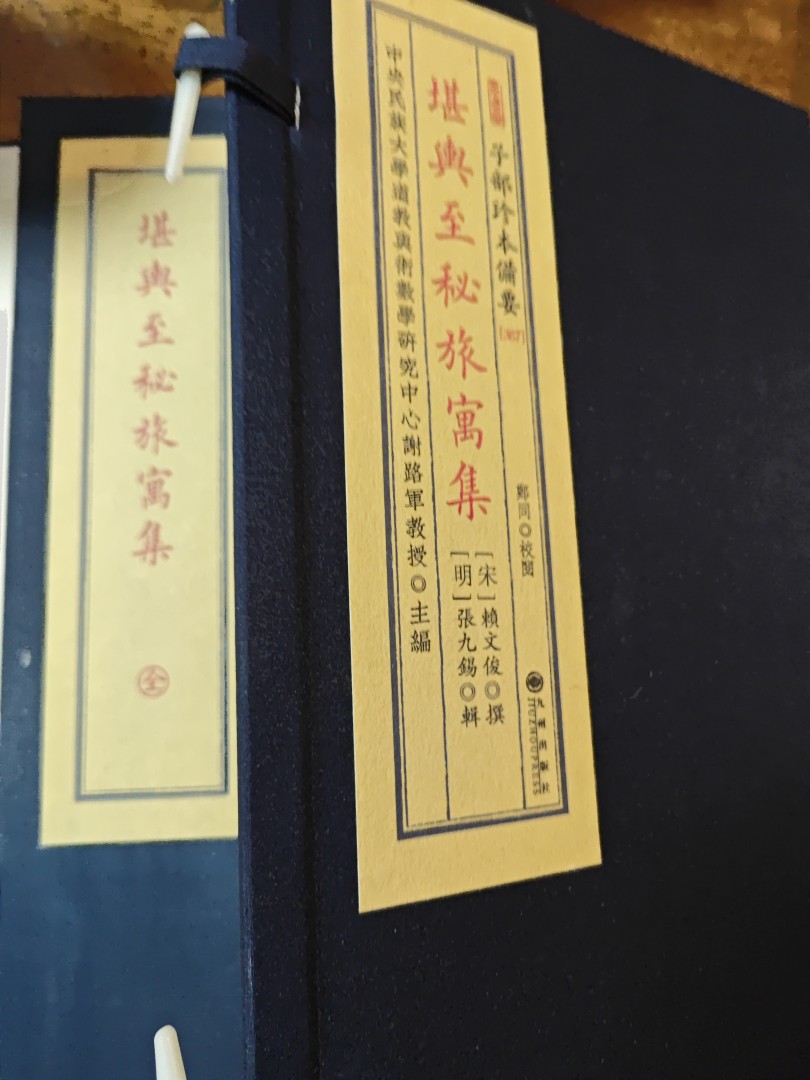 子部珍本備要
[367]
鄭同◎校閱
九州出版社
JIUZHOUPRESS
堪輿至秘旅寓集
[宋]賴文俊◎撰
[明]張九錫◎輯
中央民族大學道教與術數學研究中心謝路軍教授◎主編
堪輿至秘旅寓集
全